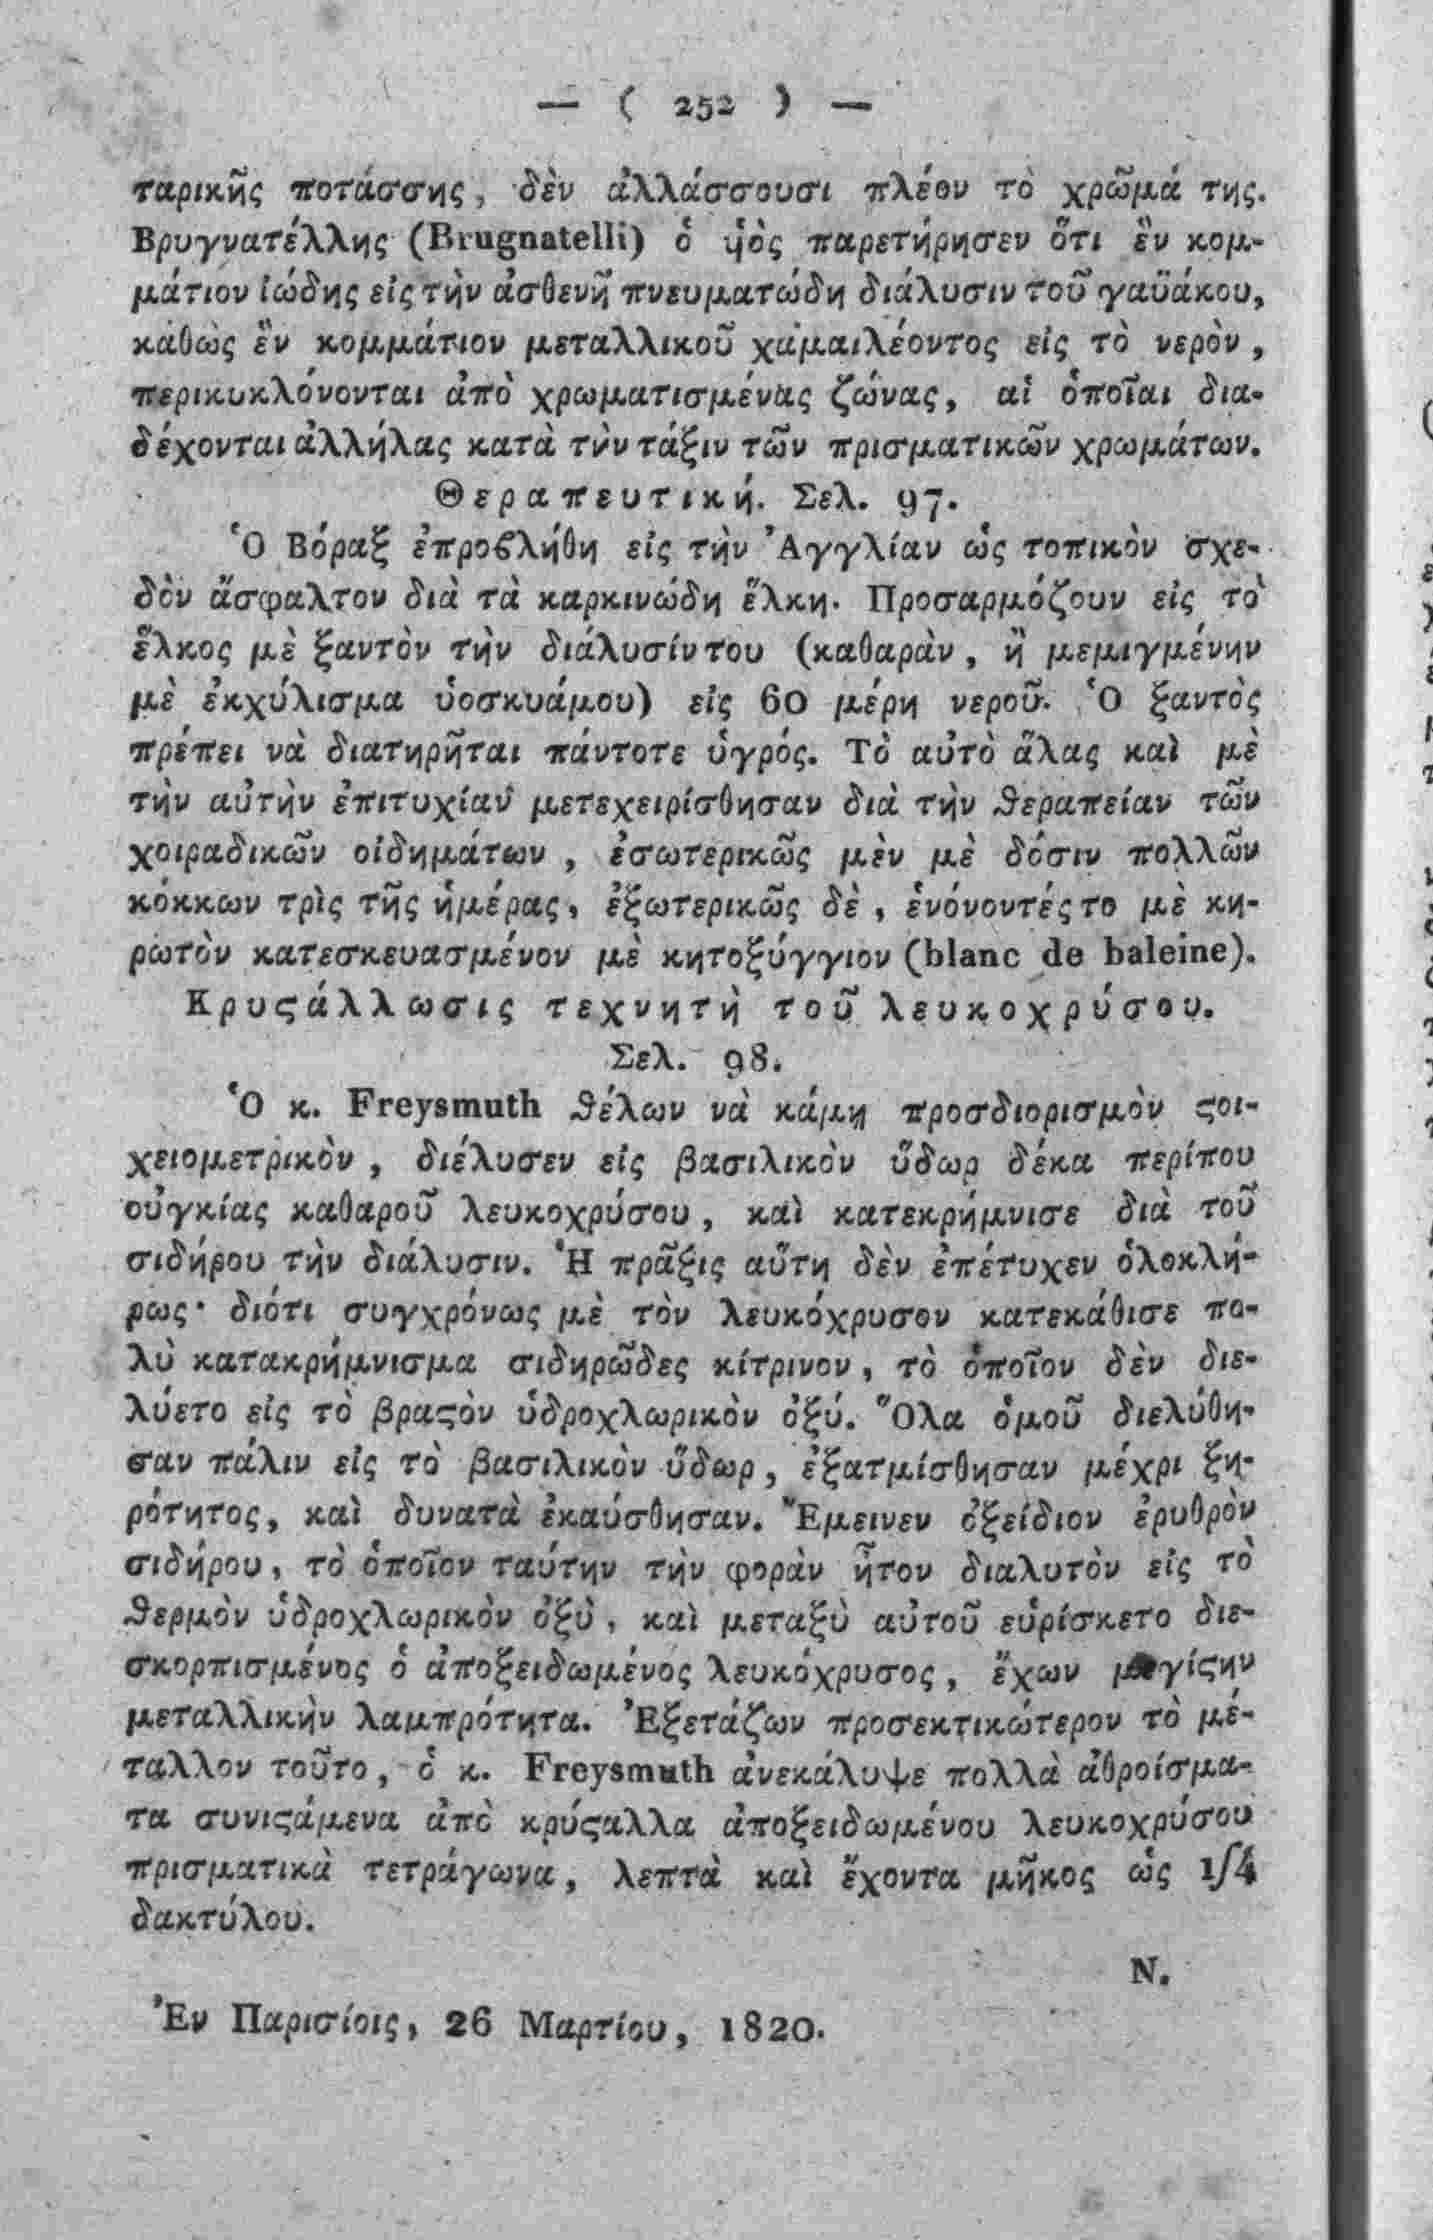 — ( 252 ) —
ταρικῆς ποτάσσης, δὲν ἀλλάσσουσι πλέον τὸ χρῶμά της.
Βρυγνατέλλης (Brugnatelli) ὁ ὑὸς παρετήρησεν ὅτι ἓν κομ-
μάτιον ἰώδης εἰς τὴν ἀσθενῆ πνευματώδη διάλυσιν τοῦ γαϋάκου,
καθὼς ἓν κομμάτιον μεταλλικοῦ χαμαιλέοντος εἰς τὸ νερὸν,
περικυκλόνονται ἀπὸ χρωματισμένας ζώνας, αἱ ὁποῖαι δια-
δέχονται ἀλλήλας κατὰ τὴν τάξιν τῶν πρισματικῶν χρωμάτων.
Θεραπευτική. Σελ. 97.
Ὁ Βόραξ ἐπροϐλήθη εἰς τὴν Ἀγγλίαν ὡς τοπικὸν σχε-
δὸν ἄσφαλτον διὰ τὰ καρκινώδη ἕλκη. Προσαρμόζουν εἰς τὸ
ἕλκος μὲ ξαντὸν τὴν διάλυσίν του (καθαρὰν, ἢ μεμιγμένην
μὲ ἐκχύλισμα ὑοσκυάμου) εἰς 60 μέρη νεροῦ. Ὁ ξαντὸς
πρέπει νὰ διατηρῆται πάντοτε ὑγρός. Τὸ αὐτὸ ἅλας καὶ μὲ
τὴν αὐτὴν ἐπιτυχίαν μετεχειρίσθησαν διὰ τὴν ϑεραπείαν τῶν
χοιραδικῶν οἰδημάτων, ἐσωτερικῶς μὲν μὲ δόσιν πολλῶν
κόκκων τρὶς τῆς ἡμέρας, ἐξωτερικῶς δὲ, ἑνόνοντές το μὲ κη-
ρωτὸν κατεσκευασμένον μὲ κητοξύγγιον (blanc de baleine).
Κρυϛάλλωσις τεχνητὴ τοῦ λευκοχρύσου.
Σελ. 98.
Ὁ κ. Freysmuth ϑέλων νὰ κάμῃ προσδιορισμὸν ϛοι-
χειομετρικὸν, διέλυσεν εἰς βασιλικὸν ὕδωρ δέκα περίπου
οὐγκίας καθαροῦ λευκοχρύσου, καὶ κατεκρήμνισε διὰ τοῦ
σιδήρου τὴν διάλυσιν. Ἡ πρᾶξις αὕτη δὲν ἐπέτυχεν ὁλοκλή-
ρως· διότι συγχρόνως μὲ τὸν λευκόχρυσον κατεκάθισε πο-
λὺ κατακρήμνισμα σιδηρῶδες κίτρινον, τὸ ὁποῖον δὲν διε-
λύετο εἰς τὸ βραϛὸν ὑδροχλωρικὸν ὀξύ. Ὅλα ὁμοῦ διελύθη-
σαν πάλιν εἰς τὸ βασιλικὸν ὕδωρ, ἐξατμίσθησαν μέχρι ξη-
ρότητος, καὶ δυνατὰ ἐκαύσθησαν. Ἔμεινεν ὀξείδιον ἐρυθρὸν
σιδήρου, τὸ ὁποῖον ταύτην τὴν φορὰν ἦτον διαλυτὸν εἰς τὸ
ϑερμὸν ὑδροχλωρικὸν ὀξὺ, καὶ μεταξὺ αὐτοῦ εὑρίσκετο διε-
σκορπισμένος ὁ ἀποξειδωμένος λευκόχρυσος, ἔχων μεγίϛην
μεταλλικὴν λαμπρότητα. Ἐξετάζων προσεκτικώτερον τὸ μέ-
ταλλον τοῦτο, ὁ κ. Freysmuth ἀνεκάλυψε πολλὰ ἀθροίσμα-
τα συνιϛάμενα ἀπὸ κρύϛαλλα ἀποξειδωμένου λευκοχρύσου
πρισματικὰ τετράγωνα, λεπτὰ καὶ ἔχοντα μῆκος ὡς 1/4
δακτύλου.
Ν.
Ἐν Παρισίοις, 26 Μαρτίου, 1820.